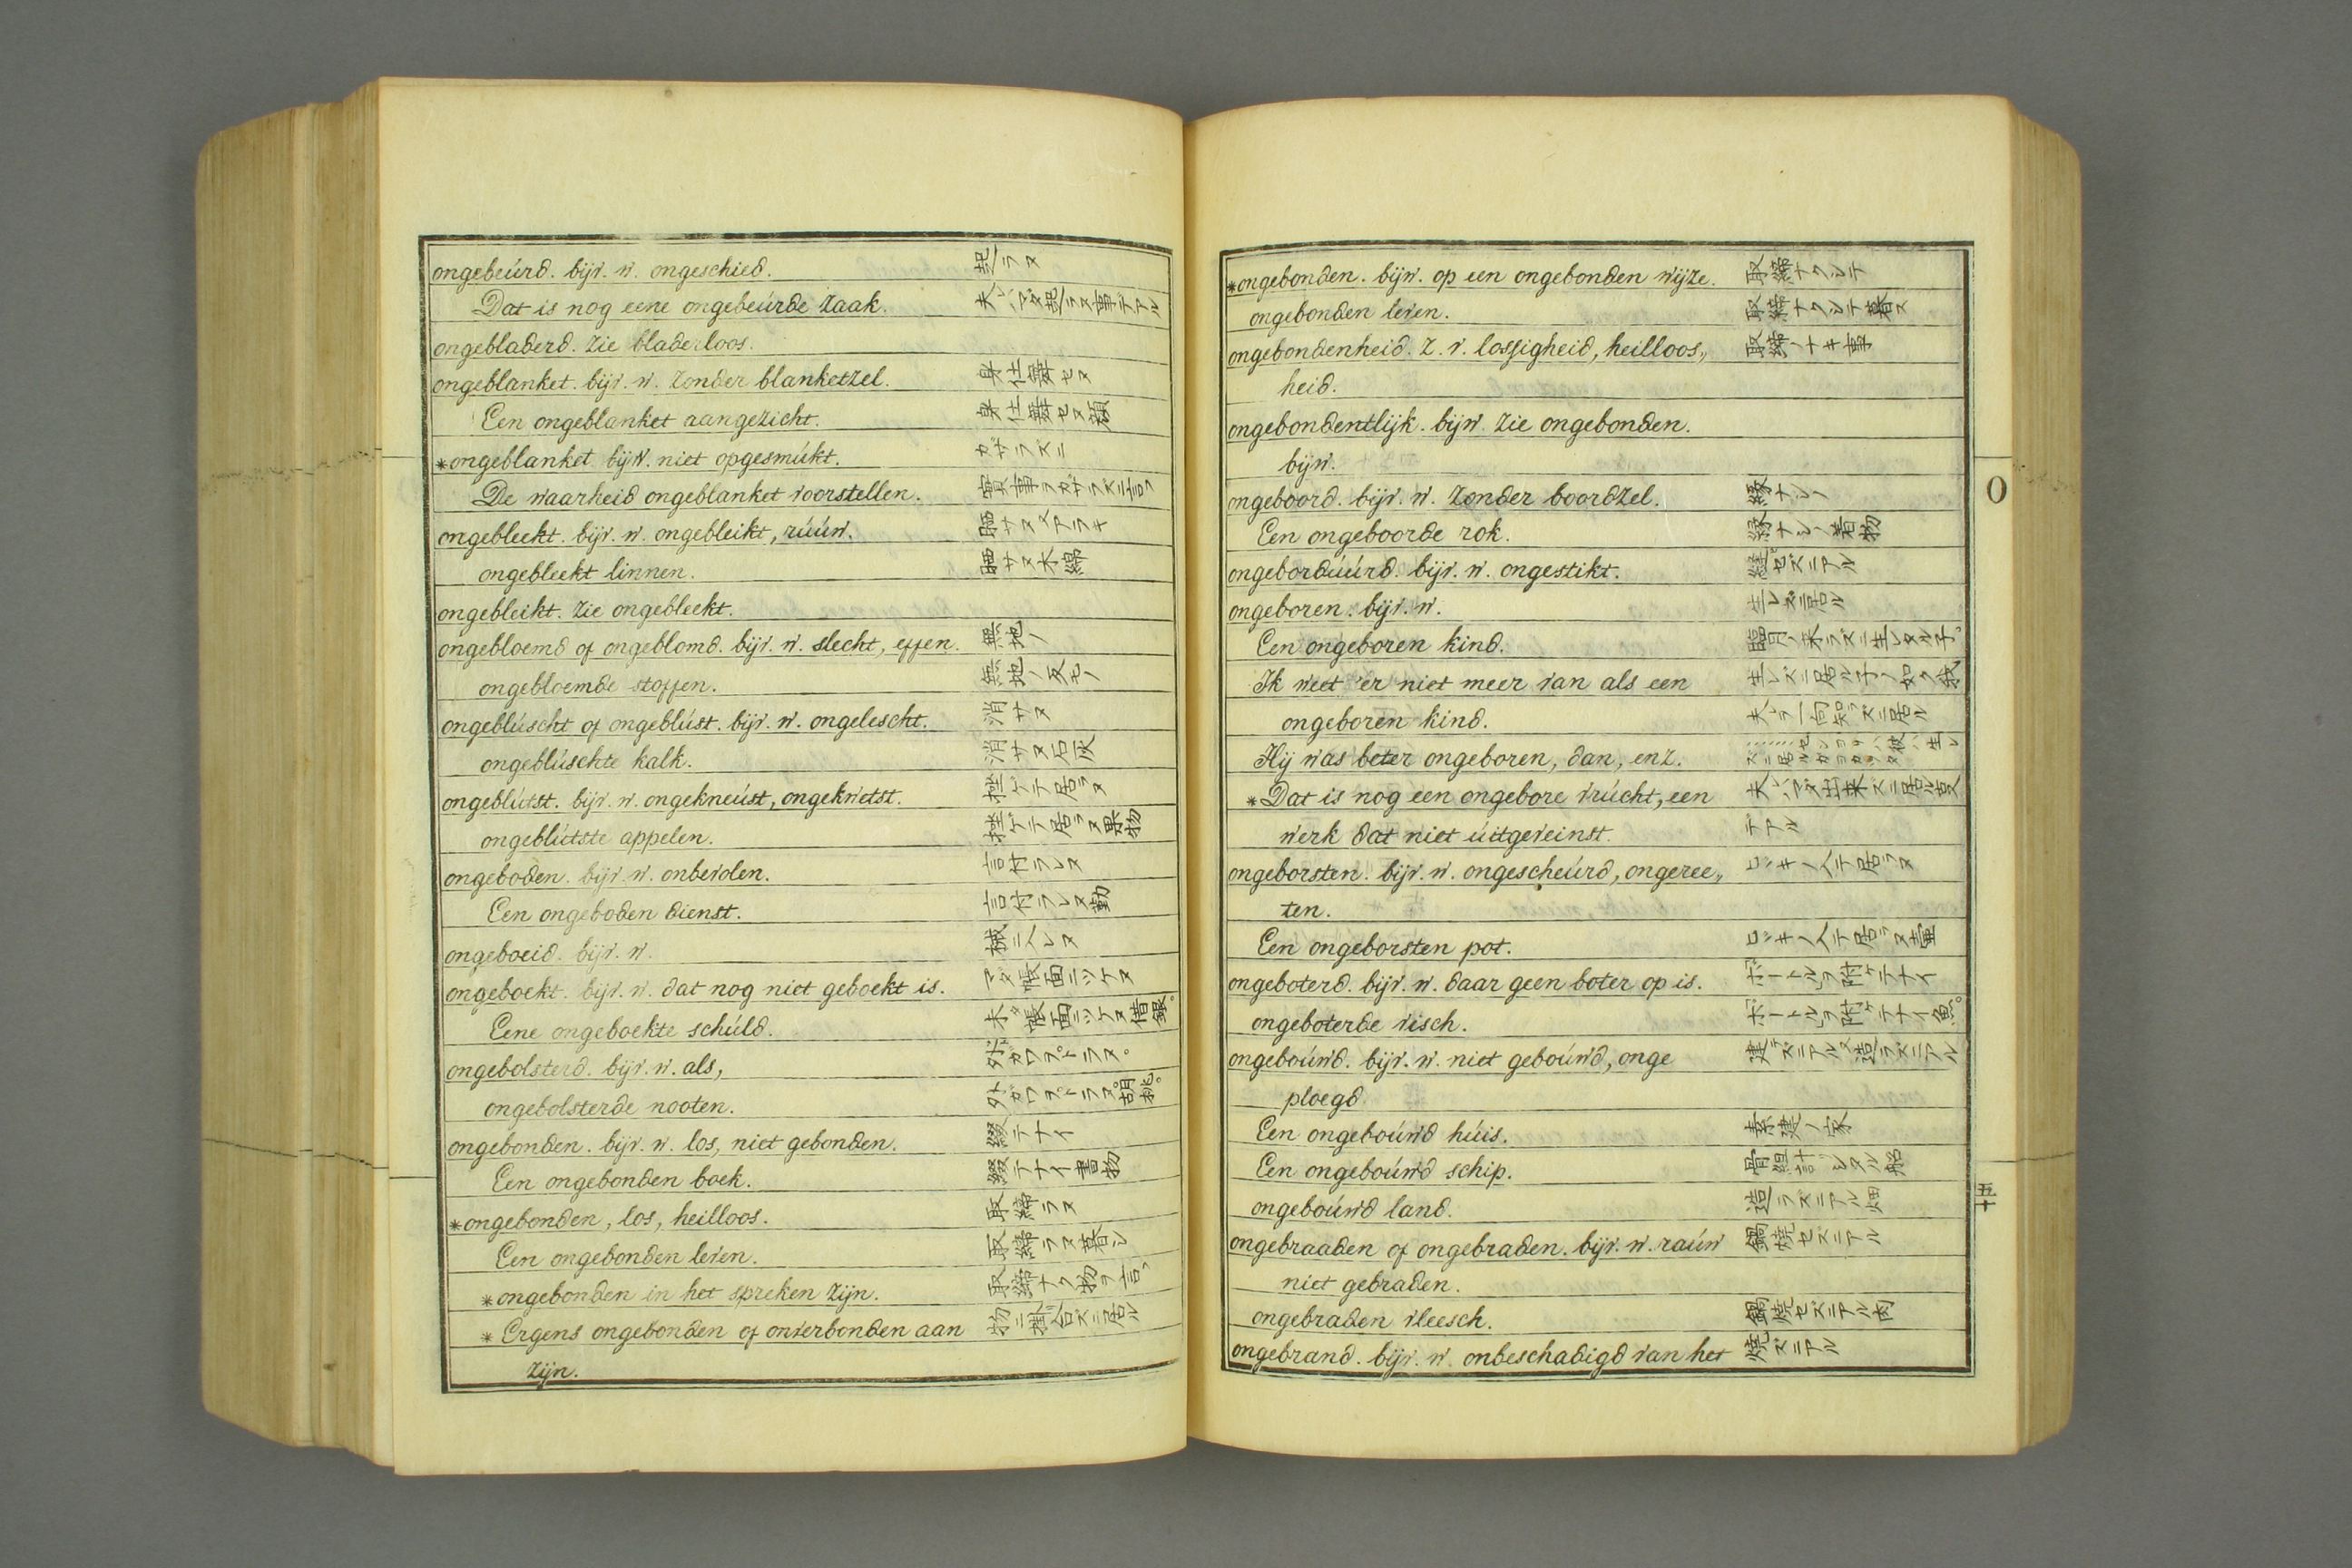 ongebeúrd. bijv. w. ongeschied. 起ラヌ
Dat is nog eene ongebeúrde zaak. 夫レハマダ起ラヌ事デアル
ongebladerd. zie bladerloos.
ongeblanket. bijv. w. zonder blanketzel. 身仕舞セヌ
Een ongeblanket aangezicht. 身仕舞セヌ顔
*ongeblanket bijw. niet opgesmúkt. カザラズニ
De waarheid ongeblanket voorstellen. 實事ヲカザラズニ言フ
ongebleekt. bijv. w. ongebleikt, rúúw. 晒サヌ
ongebleekt linnen. 晒サヌ木綿
ongebleikt. zie ongebleekt.
ongebloemd of ongeblomd. bijv. w. slecht, effen. 無地ノ
ongebloemde stoffen. 無地ノ反モノ
ongeblúscht of ongeblúst. bijv. w. ongelescht. 消サヌ
ongeblúschte kalk. 消サヌ石灰
ongeblútst. bijv. w. ongekneúst, ongekwetst. 挫ゲテ居ラヌ
ongeblútste appelen. 挫ゲテ居ラヌ果物
ongeboden. bijv. w. onbevolen. 言付ラレヌ
Een ongeboden dienst. 言付ラレヌ勤
ongeboeid. bijv. w. 械ニ入レヌ
ongeboekt. bijv. w. dat nog niet geboekt is. マダ帳面ニツケヌ
Eene ongeboekte schúld. 未ダ帳面ニツケヌ借銀。
ongebolsterd. bijv. w. als, 外ガワヌ
ongebolsterde nooten. 胡桃。
ongebonden. bijv. w. los, niet gebonden. 綴テナイ
Een ongebonden boek. 綴テナイ書物
*ongebonden, los, heilloos. 取締ラヌ
Een ongebonden leven. 取締ラヌ暮シ
*ongebonden in het spreken zijn. 取締ナク物ヲ言フ
*Ergens ongebonden of onverbonden aan 物ニ掛合ズニ居ル
zijn.
*ongebonden. bijw. op een ongebonden wijze. 取締ナクシテ
ongebonden leven. 取締ナクシテ暮ス
ongebondenheid. z. v. lossigheid, heilloos„ 取締ノナキ事
heid.
ongebondentlijk. bijw. zie ongebonden.
bijw.
ongeboord. bijv. w. zonder boordzel. 縁ナシノ
Een ongeboorde rok. 縁ナシノ着物
ongebordúúrd. bijv. w. ongestikt. 縫セズニアル
ongeboren. bijv. w. 生レズニ居ル
Een ongeboren kind. 臨月ノ来ラズニ生レタル子。
Ik weet 'er niet meer van als een 生レズニ居ル子ノ如ク我
ongeboren kind. 夫レヲ一向知ラズニ居ル
Hij was beter ongeboren, dan, enz. ……センヨリハ彼ハ生レズニ居ルガヨカッタ
*Dat is nog een ongebore vrúcht, een 夫レハマダ出来ズニ居ル
werk dat niet úitgeveinst. デアル
ongeborsten. bijv. w. ongescheúrd, ongeree„ ヒヾキノ入テ居ラヌ
ten.
Een ongeborsten pot. ヒヾキノ入テ居ラヌ壷
ongeboterd. bijv. w. daar geen boter op is. 「ボートル」ヲ附ケテナイ
ongeboterde visch. 「ボートル」ヲ附ケテナイ魚。
ongeboúwd. bijv. w. niet geboúwd, onge 建ズニアル又造ラズニアル
ploegd
Een ongeboúwd húis. 素建ノ家
Een ongeboúwd schip. 骨組計シタル船
ongeboúwd land. 造ラズニアル畑
ongebraaden of ongebraden. bijv. w. raúw 鍋焼セズニアル
niet gebraden.
ongebraden vleesch. 鍋焼セズニアル肉
ongebrand. bijv. w. onbeschadigd van het 焼ズニアル
O
五十